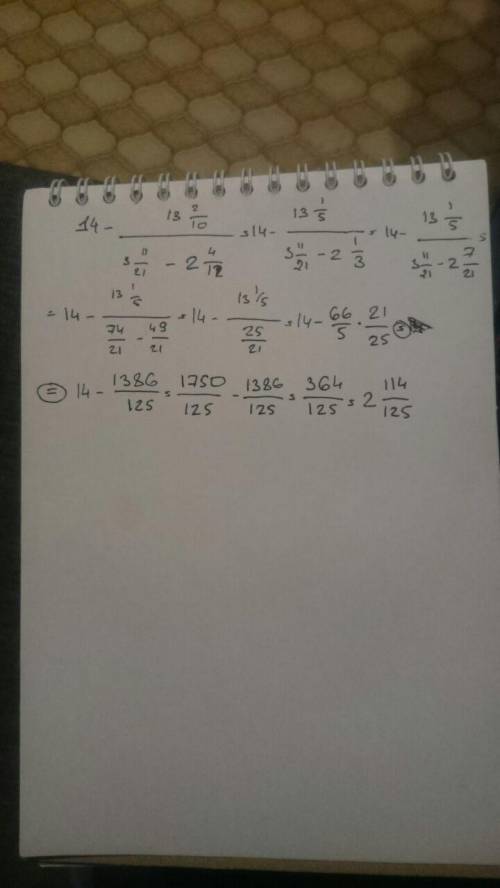 14 - (13 2/10)/(3 11/21 - 2 4/12) = 14 - (13 1/5)/(3 11/21 - 2 1/3) = 14 - (13 1/5)/(3 11/21 - 2 7/21) =
= 14 - (13 1/5)/(74/21 - 49/21) = 14 - (13 1/5)/(25/21) = 14 - 66/5 · 21/25 =
= 14 - 1386/125 = 1750/125 - 1386/125 = 364/125 = 2 114/125